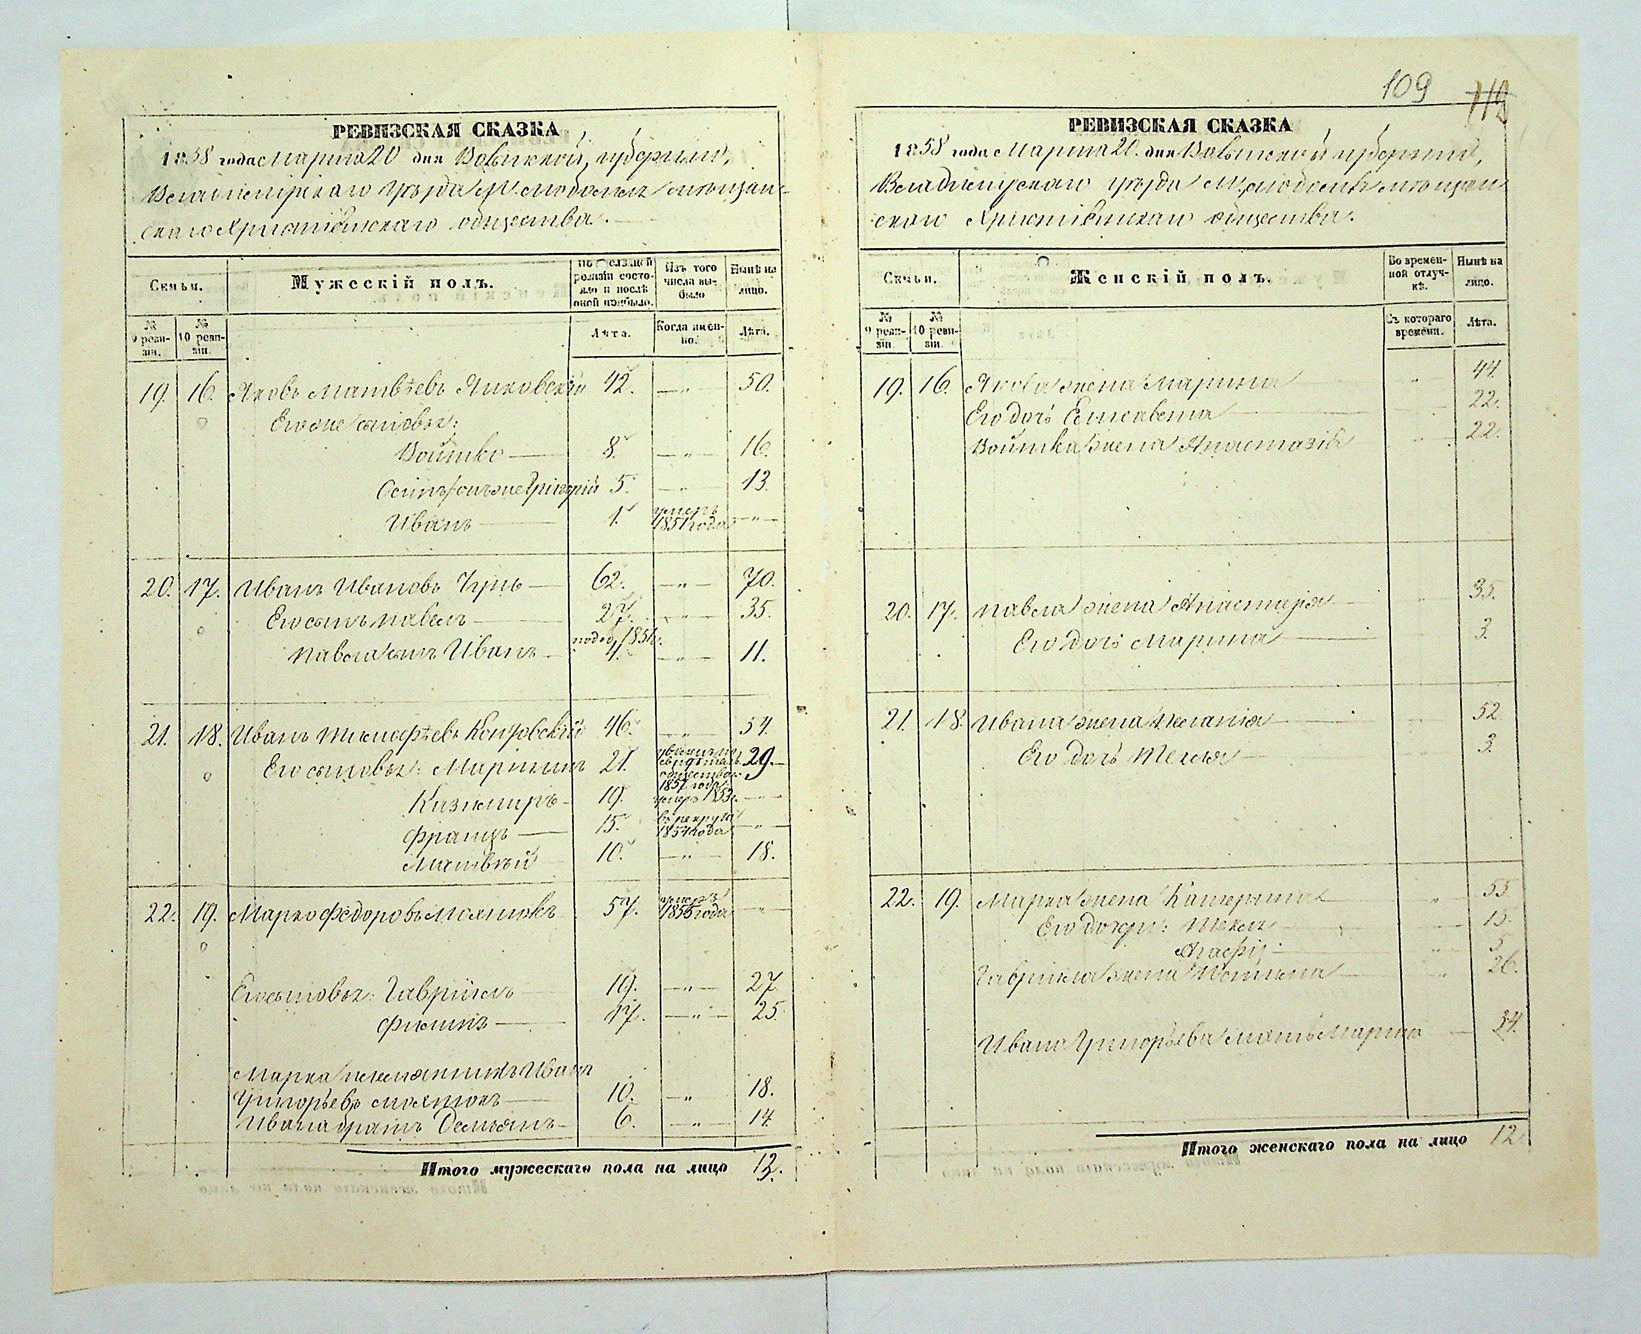 109 112
РЕВИЗСКАЯ СКАЗКА
1858 года Марта 20 дня Волынской губернии,
Владимирскаго уезда М. мещан-
скаго Христіянскаго общества.
Семьи.
Мужескій полъ.
По послѣдней ревизіи состояло и послѣ оной прибыло.
Изъ того числа выбыло
Нынѣ на лицо.
№ 9 ревизіи.
№ 10 ревизіи.
Лѣта.
Когда именно.
Лѣта.
19. 16. Яковъ Матвѣевъ Янковскій 42. — „ — 50.
Его же сыновья:
Войтко — 8. — „ — 16.
Осипъ Григорій 5. — „ — 13.
Иванъ — 1. умеръ 1851 года — „ —
20. 17. Иванъ Ивановъ — 62. — „ — 70.
Его сынъ Павелъ — 27. — „ — 35.
Павла сынъ Иванъ — 1851 — „ — 11.
21. 18. Иванъ Тимофѣевъ 46. — „ — 54.
Его сыновья: Мартинъ 21. 1857 года 29.
Казимиръ — 19. умеръ 1853 г. — „ —
Францъ — 15. въ рекруты 1854 года — „ —
Матвѣй — 10. — „ — 18.
22. 19. Марко Федоровъ 57. умеръ 1856 года — „ —
Его сыновья: Гавріилъ — 19. — „ — 27.
Филипъ — 17. — „ — 25.
Марка племянникъ Иванъ
Григорьевъ — 10. — „ 18.
Ивана братъ Демьянъ — 6. — „ — 14.
Итого мужескаго пола на лицо 13.
РЕВИЗСКАЯ СКАЗКА
1858 года Марта 20 дня Волынской губерніи,
Владимирскаго уезда М. мещан-
скаго Христіянскаго общества.
Семьи.
Женскій полъ.
Во временной отлучкѣ.
Нынѣ на лицо.
№ 9 ревизіи.
№ 10 ревизіи.
Съ котораго времени.
Лѣта.
19. 16. Якова жена Марина — „ 44.
Его дочь Елисавета — 22.
Войтка жена Анастазія — „ 22.
20. 17. Павла жена Анастазія — 35.
Его дочь Марина — 3.
21. 18. Ивана жена Меланія — 52.
Его дочь Текля — 3.
22. 19. Марка жена Катерина — „ 55
Его дочери: Текля — „ 15.
Агафія — „ 5.
Гавріила жена — „ 26.
Ивана Григорьева мать Марина — 54.
Итого женскаго пола на лицо 12.